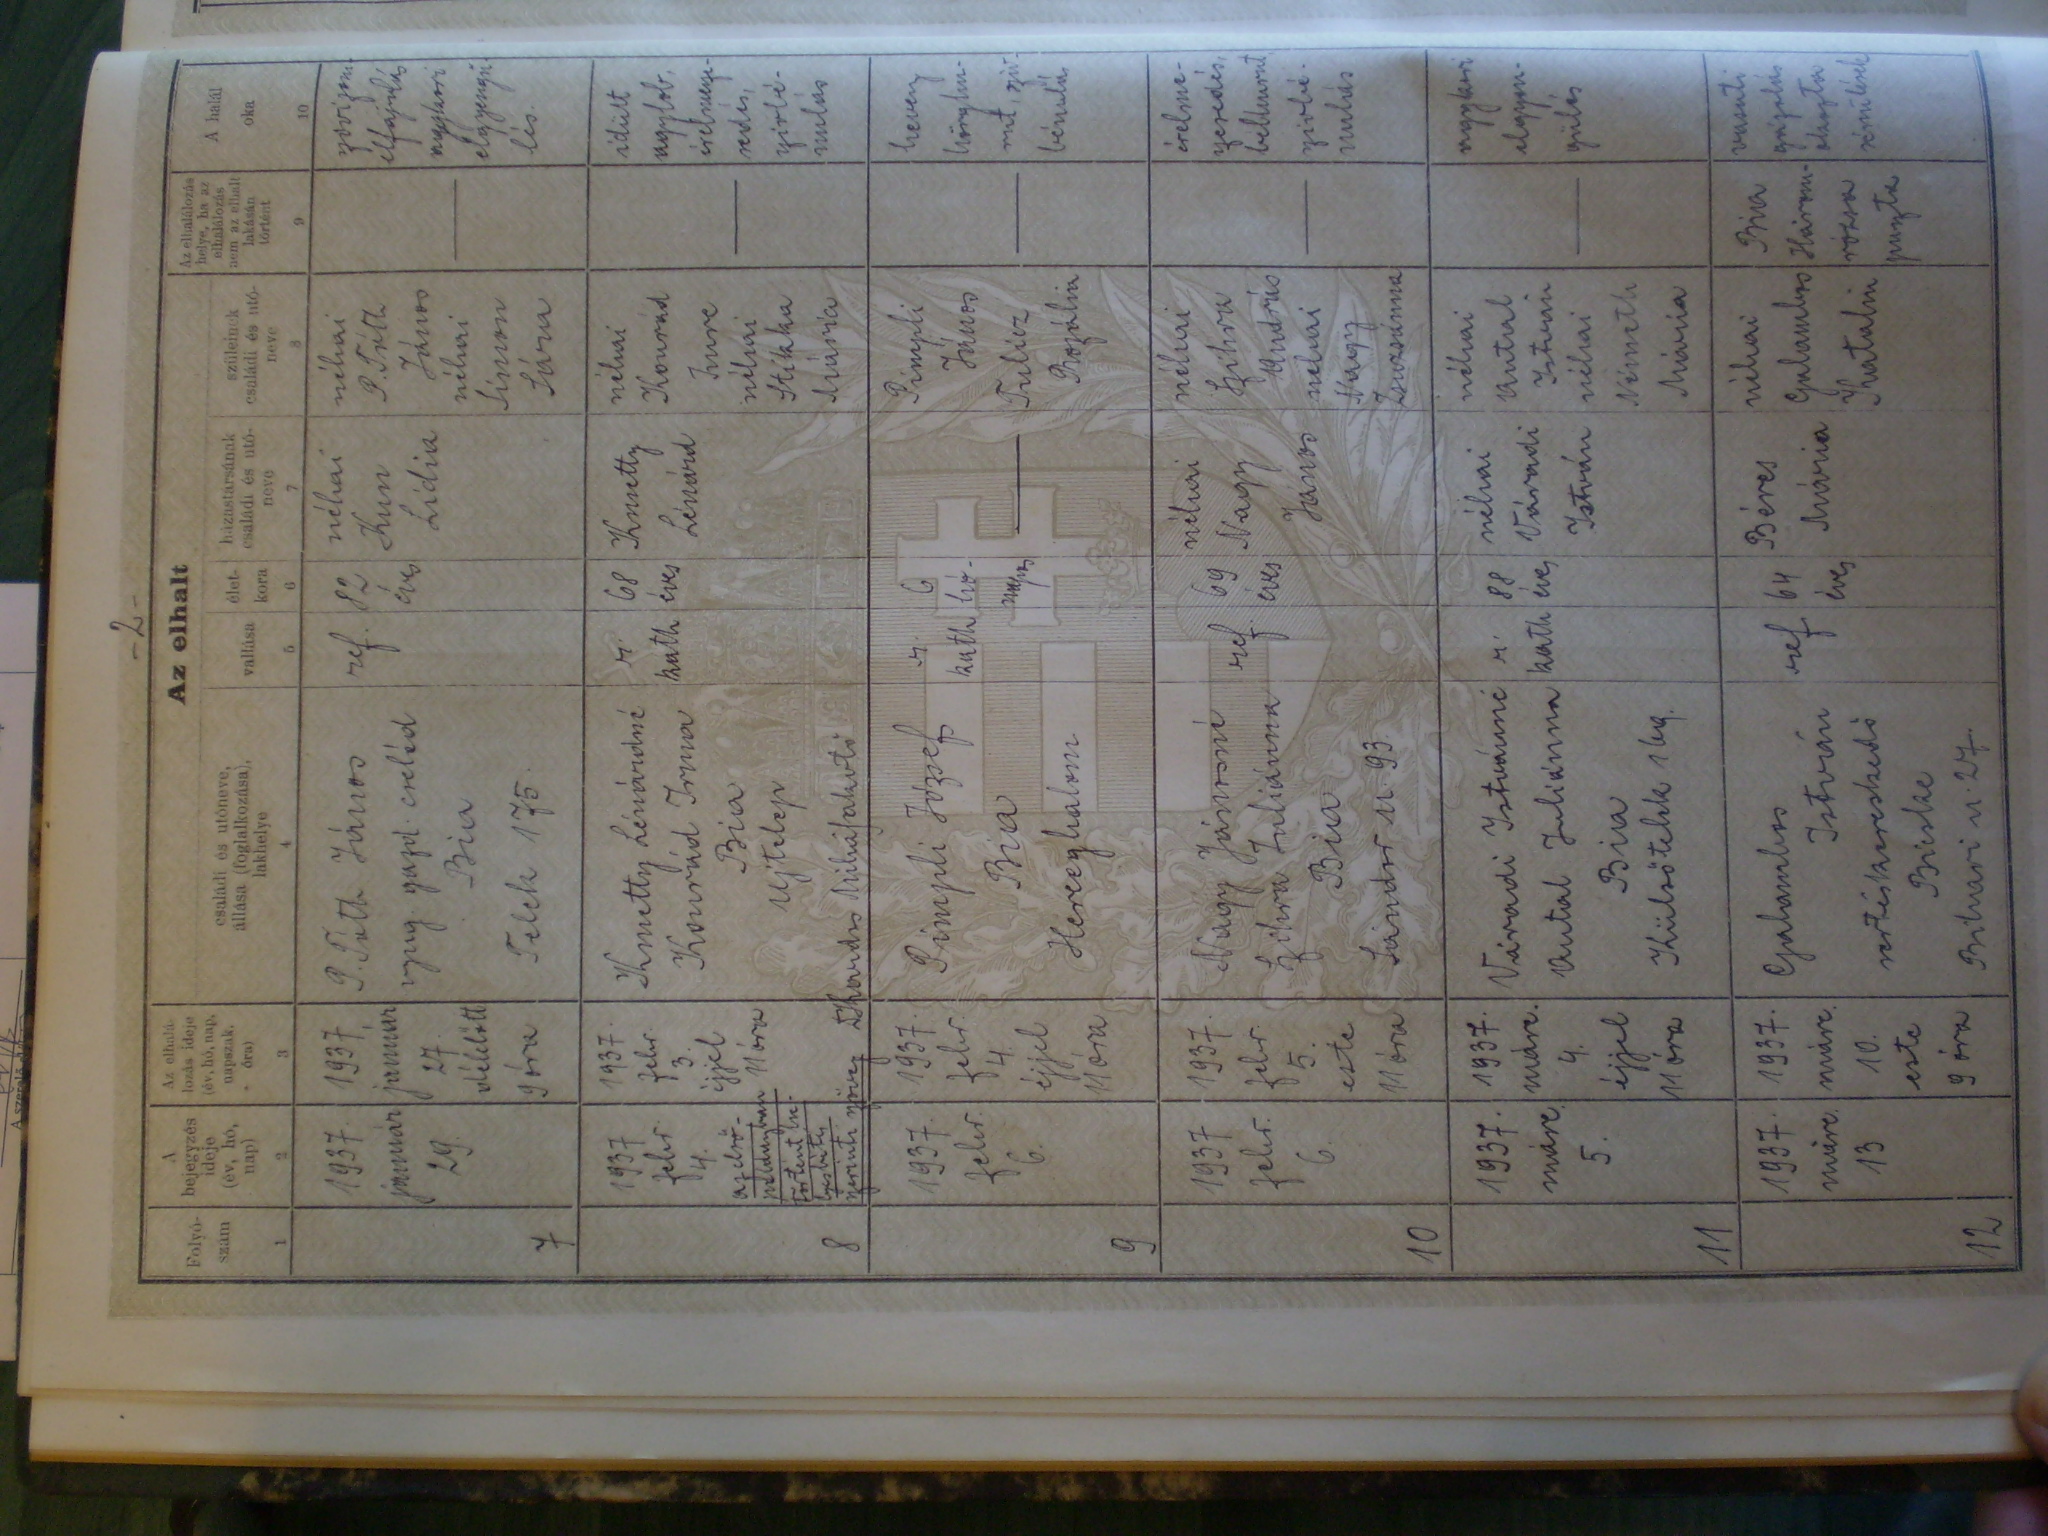 - 2 -
Az elhalt
Folyó-
szám
1
A
bejegyzés
ideje
(év, hó,
nap)
2
Az elhalá-
lozás ideje
(év, hó, nap,
napszak,
óra)
3
családi és utóneve,
állása (foglalkozása),
lakhelye
4
vallása
5
élet-
kora
6
házastársának
családi és utó-
neve
7
szüleinek
családi és utó-
neve
8
Az elhalálozás
helye, ha az
elhalálozás
nem az elhalt
lakásán
történt
9
A halál
oka
10
7
1937.
január
29.
1937.
január
27.
délelőtt
9 óra
P. Tóth János
nyug. gazd. cseléd
Bia
Telek 175.
ref.
82
éves
néhai
Kun
Lídia
néhai
P. Tóth
János
néhai
Simon
Sára
—
elfajulás
aggkori
elgyengü-
lés.
8
1937
febr.
4.
1937.
febr.
3.
éjjel
11 óra
Kmetty Lénárdné
Konrád Irma
Bia
Ujtelep
r.
kath
68
éves
Kmetty
Lénárd
néhai
Konrád
Imre
néhai
Stikka
Mária
—
idült
agylob,
érelmesze-
sedés,
szivbé-
nulás
9
1937.
febr.
6.
1937.
febr.
4.
éjjel
11 óra
Pimpli József
Bia
Herceghalom
r.
kath
6
hó-
napos
—
Pimpli
János
Tulicz
Rozália
—
heveny
hörghu-
rut, sziv-
bénulás
10
1937
febr.
6.
1937.
febr.
5.
este
11 óra
Nagy Jánosné
Szihra Juliánna
Bia
Sándor u. 93.
ref.
69
éves
néhai
Nagy
János
néhai
Szihra
András
néhai
Nagy
Zsuzsánna
—
érelme-
szesedés,
bélhurut,
szivbé-
nulás
11
1937.
márc.
5.
1937.
márc.
4.
éjjel
11 óra
Váradi Istvánné
Antal Juliánna
Bia
Külsőtelek 1 hg.
r.
kath
88
éves
néhai
Váradi
István
néhai
Antal
István
néhai
Németh
Mária
—
aggkori
elgyen-
gülés
12
1937.
márc.
13
1937.
márc.
10.
este
9 óra
Galambos
István
sertéskereskedő
Bicske
Bihari u. 27.
ref
64
éves
Béres
Mária
néhai
Galambos
Katalin
Bia
Három-
rózsa
puszta
vasuti
gázolás
okozta
sérülések